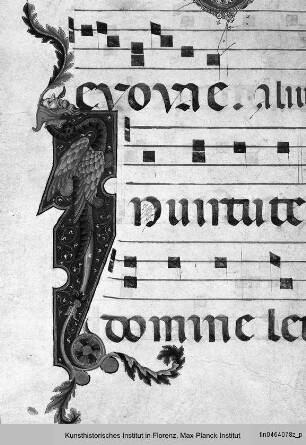 evovae. aliu
n uirtute
domine let
Kunsthistorisches Institut in Florenz, Max Planck Institut
fln0464078z_p